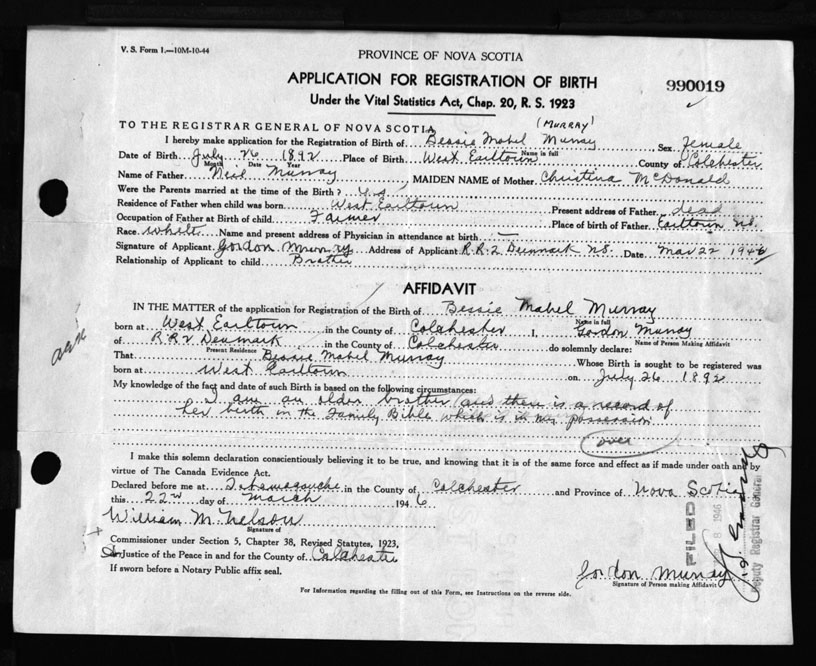 V. S. Form 1.—10M-10-44
PROVINCE OF NOVA SCOTIA
APPLICATION FOR REGISTRATION OF BIRTH
990019
Under the Vital Statistics Act, Chap. 20, R. S. 1923
(MURRAY)
TO THE REGISTRAR GENERAL OF NOVA SCOTIA
I hereby make application for the Registration of Birth of Bessie Mabel Murray Sex female
Name in full
Date of Birth July 26 1892 Place of Birth West Earltown County of Colchester
Month Date Year
Name of Father Neil Murray MAIDEN NAME of Mother Christina McDonald
Were the Parents married at the time of the Birth? yes
Residence of Father when child was born West Earltown Present address of Father dead
Occupation of Father at Birth of child Farmer Place of birth of Father Earltown NS.
Race white Name and present address of Physician in attendance at birth —
Signature of Applicant Gordon Murray Address of Applicant R.R.2 Denmark N.S. Date Mar 22 1946
Relationship of Applicant to child Brother
AFFIDAVIT
IN THE MATTER of the application for Registration of the Birth of Bessie Mabel Murray
Name in full
born at West Earltown in the County of Colchester I, Gordon Murray
Name of Person Making Affidavit
of R.R 2 Denmark in the County of Colchester do solemnly declare:
Present Residence
That Bessie Mabel Murray Whose Birth is sought to be registered was
born at West Earltown on July 26 1892
My knowledge of the fact and date of such Birth is based on the following circumstances:
I am an older brother and there is a record of
her birth in the Family Bible which is in my possession
(over)
I make this solemn declaration conscientiously believing it to be true, and knowing that it is of the same force and effect as if made under oath and by
virtue of The Canada Evidence Act.
Declared before me at Tatamagouche in the County of Colchester and Province of Nova Scotia
this 22nd day of March 1946
William M. Nelson
Signature of
Commissioner under Section 5, Chapter 38, Revised Statutes, 1923,
Justice of the Peace in and for the County of Colchester
If sworn before a Notary Public affix seal.
Gordon Murray
Signature of Person making Affidavit
For Information regarding the filling out of this Form, see Instructions on the reverse side.
FILED
8 1946
Deputy Registrar General